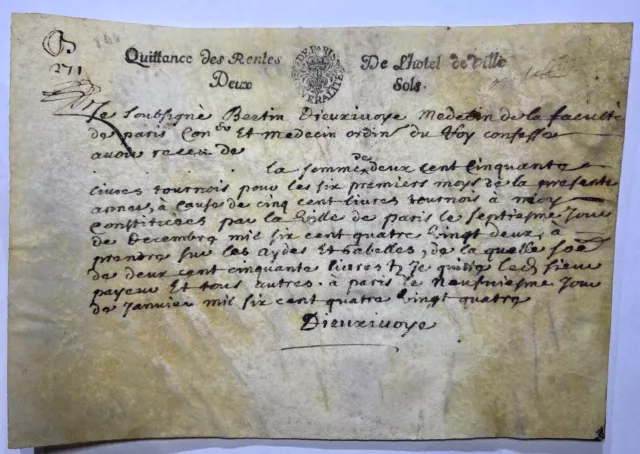 271
Quittance des Rentes De L'hotel de Ville
Deux Sols.
Je soubsigné Bertin Dieuxiuoye Medecin de la faculté
de paris Con.er Et medecin ordin.e du Roy confesse
auoir receu de
la somme de deux cent cinquante
liures tournois pour les six premiers moys de la presente
année, à cause de cinq cent liures tournois à moy
constituées par la Ville de paris le septiesme Jour
de Decembre mil six cent quatre vingt deux, à
prendre sur les Aydes Et Gabelles, de la quelle soe
de deux cent cinquante liures Je quitte led sieur
payeur Et tous autres. à paris le neufuiesme Jour
de Januier mil six cent quatre vingt quatre
Dieuxiuoye